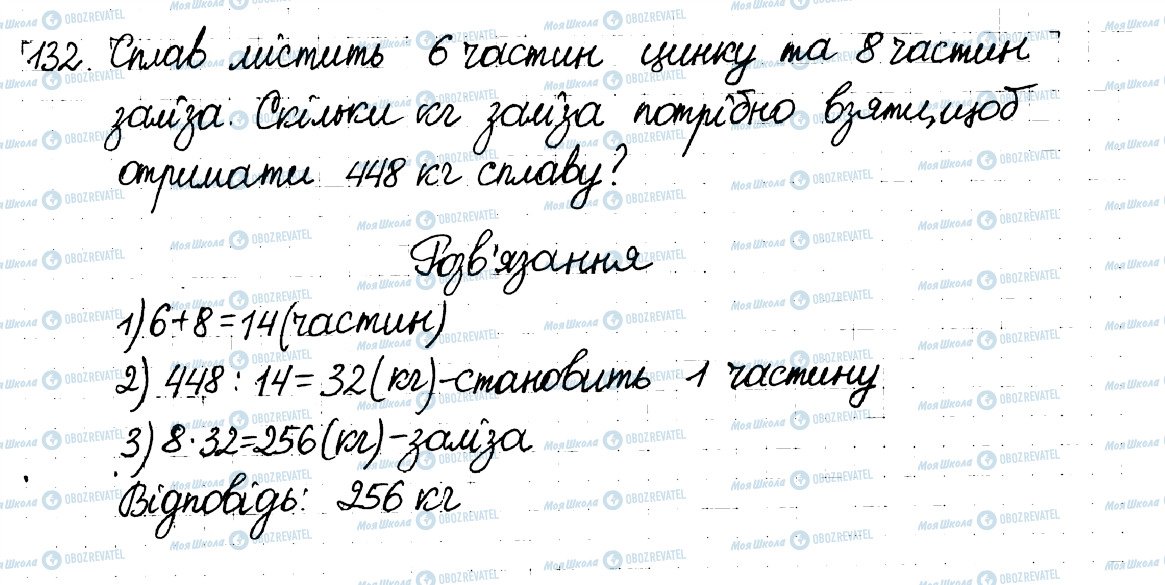 132. Сплав містить 6 частин цинку та 8 частин
заліза. Скільки кг заліза потрібно взяти, щоб
отримати 448 кг сплаву?
Розв'язання
1) 6+8=14 (частин)
2) 448 : 14 = 32 (кг) - становить 1 частину
3) 8·32=256 (кг) - заліза
Відповідь: 256 кг